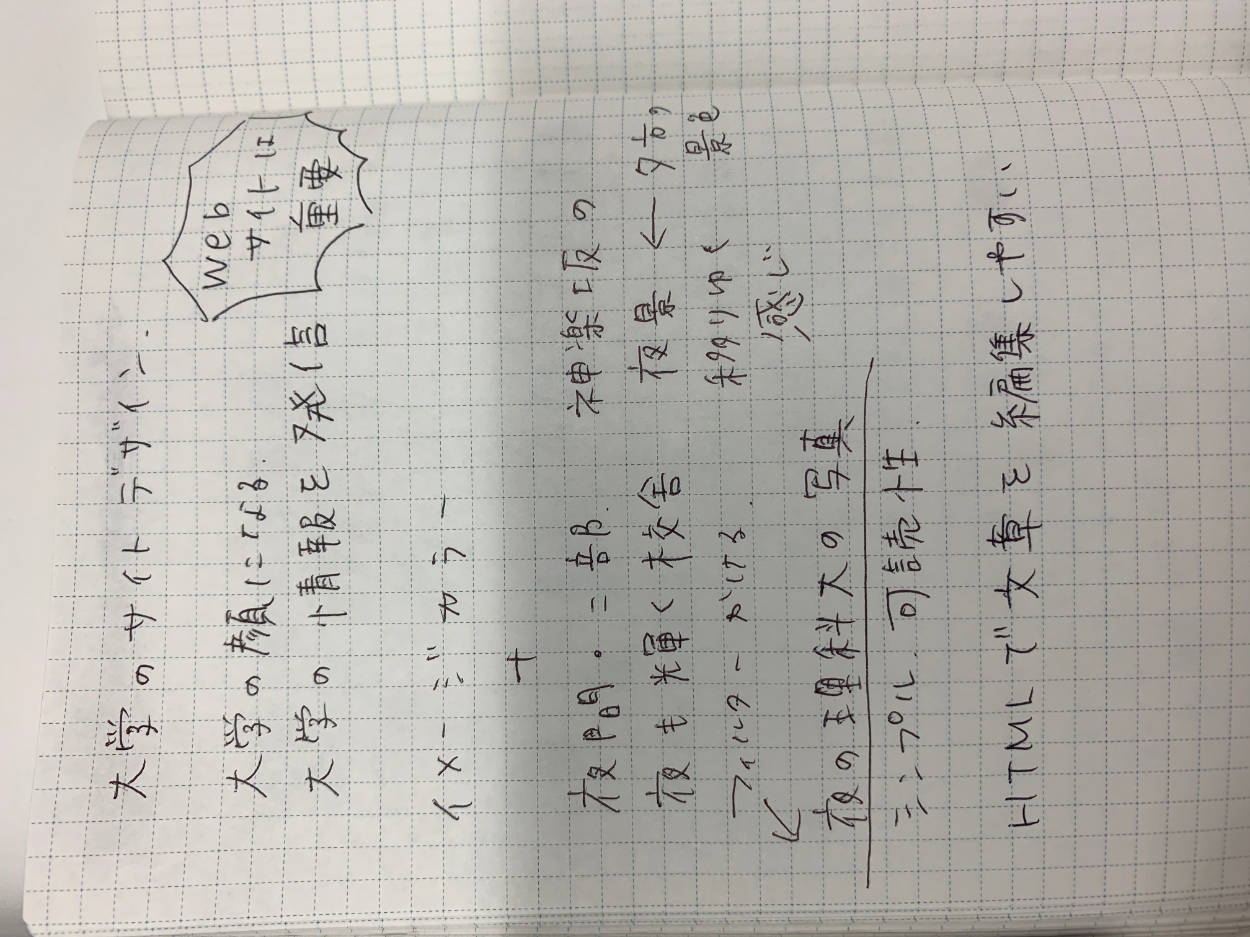 大学のサイトデザイン.
web
サイトは
重要
大学の顔になる.
大学の情報を発信
イメージカラー
+
夜間・二部.
夜も輝く校舎
フィルターかける.
夜の理科大の写真
神楽坂の
夜景 ← 夕方の
景色
移りゆく
感じ
シンプル. 可読性.
HTMLで文章を編集しやすい